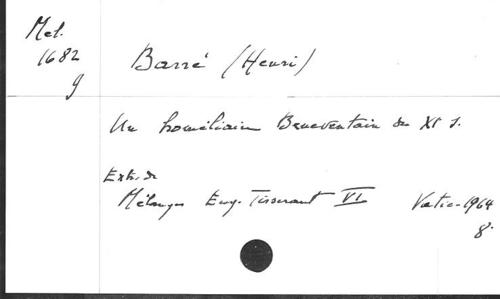 Mel.
1682
g
Barré (Henri)
Un homéliaire Beneventain du XI s.
Extr. de
Mélanges Eug. Tisserant VI Vatic. 1964
8°